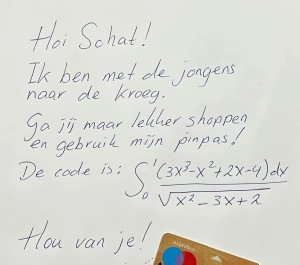 Hoi Schat!
Ik ben met de jongens
naar de kroeg.
Ga jij maar lekker shoppen
en gebruik mijn pinpas!
De code is: ∫₀¹ (3x³-x²+2x-4)dx
√x²-3x+2
Hou van je!